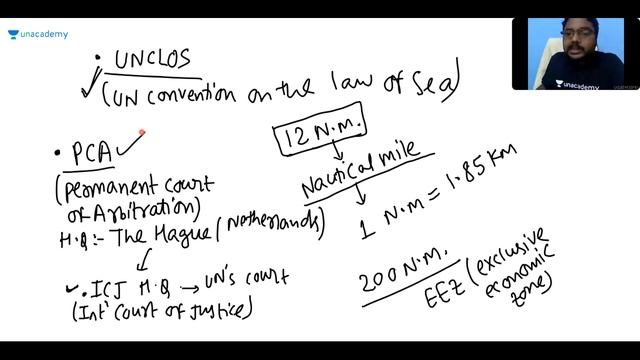 unacademy
• UNCLOS
(UN convention on the law of Sea)
• PCA
(Permanent court
of Arbitration)
H.Q:- The Hague (Netherlands)
• ICJ H.Q → UN's court
(Int' Court of Justice)
12 N.M.
Nautical mile
1 N.M = 1.85 KM
200 N.M.
EEZ (exclusive
economic
zone)
unacademy